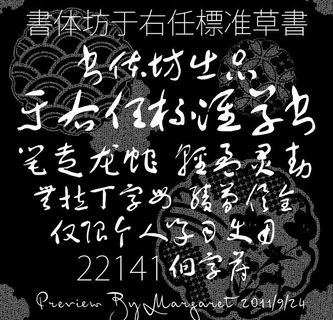 書体坊于右任標准草書
书体坊出品
于右任标准草书
笔走龙蛇 輕盈灵動
拉丁字母
仅限个人学习使用
22141 個字符
Preview By Margaret 2011/9/24